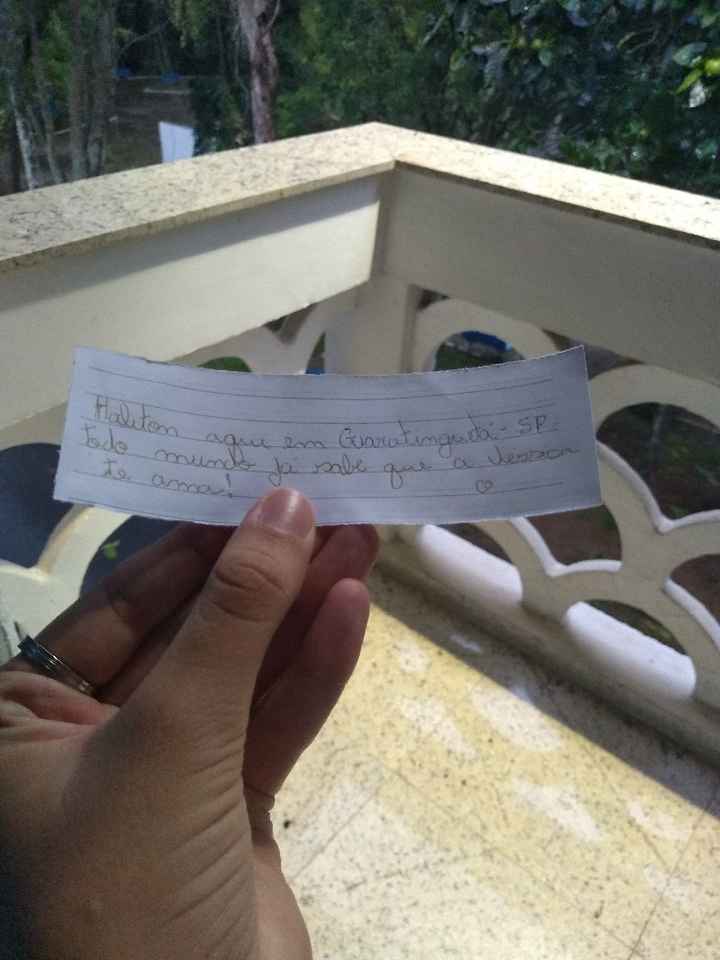 Haliton aqui em Guaratinguetá - SP.
todo mundo já sabe que a
te ama! ♡